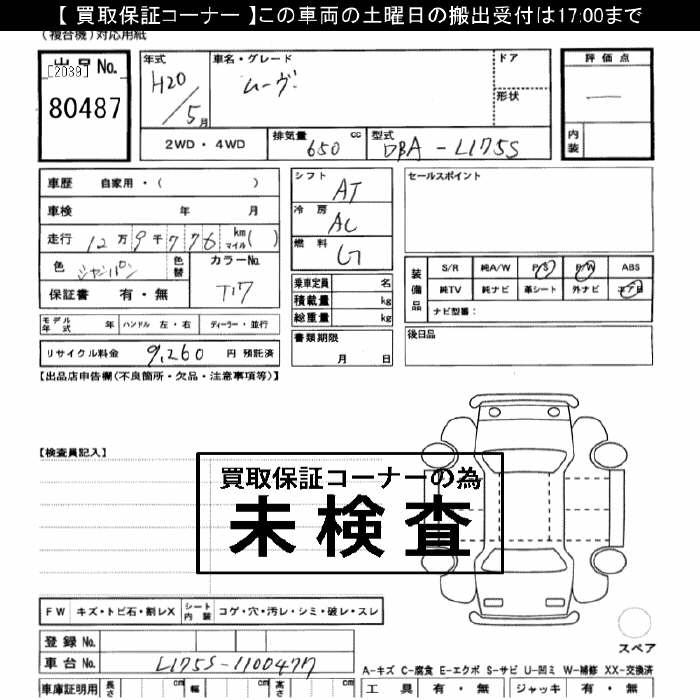 【 買取保証コーナー 】この車両の土曜日の搬出受付は17:00まで
(複合機)対応用紙
出品No.
[2039]
80487
年式
H20/5月
車名・グレード
ムーヴ
ドア
形状
評価点
—
内装
2WD・4WD
排気量 650 cc
型式 DBA-L175S
車歴 自家用・( )
車検 年 月
走行 12万9千776 km マイル( )
色 シャンパン 色替
カラーNo. T17
保証書 有・無
シフト AT
冷房 AC
燃料 G
乗車定員 名
積載量 kg
総重量 kg
書類期限
月 日
セールスポイント
装備品
S/R 純A/W P/S P/W ABS
純TV 純ナビ 革シート 外ナビ エアB
ナビ型番:
後日品
モデル年式 年 ハンドル 左・右 ディーラー・並行
リサイクル料金 9,260 円 預託済
【出品店申告欄(不良箇所・欠品・注意事項等)】
【検査員記入】
買取保証コーナーの為
未検査
FW キズ・トビ石・割レX シート内装 コゲ・穴・汚レ・シミ・破レ・スレ
スペア
登録No.
車台No. L175S-1100477
A-キズ C-腐食 E-エクボ S-サビ U-凹ミ W-補修 XX-交換済
車庫証明用 長さ cm 幅 cm 高さ cm
工具 有・無 ジャッキ 有・無